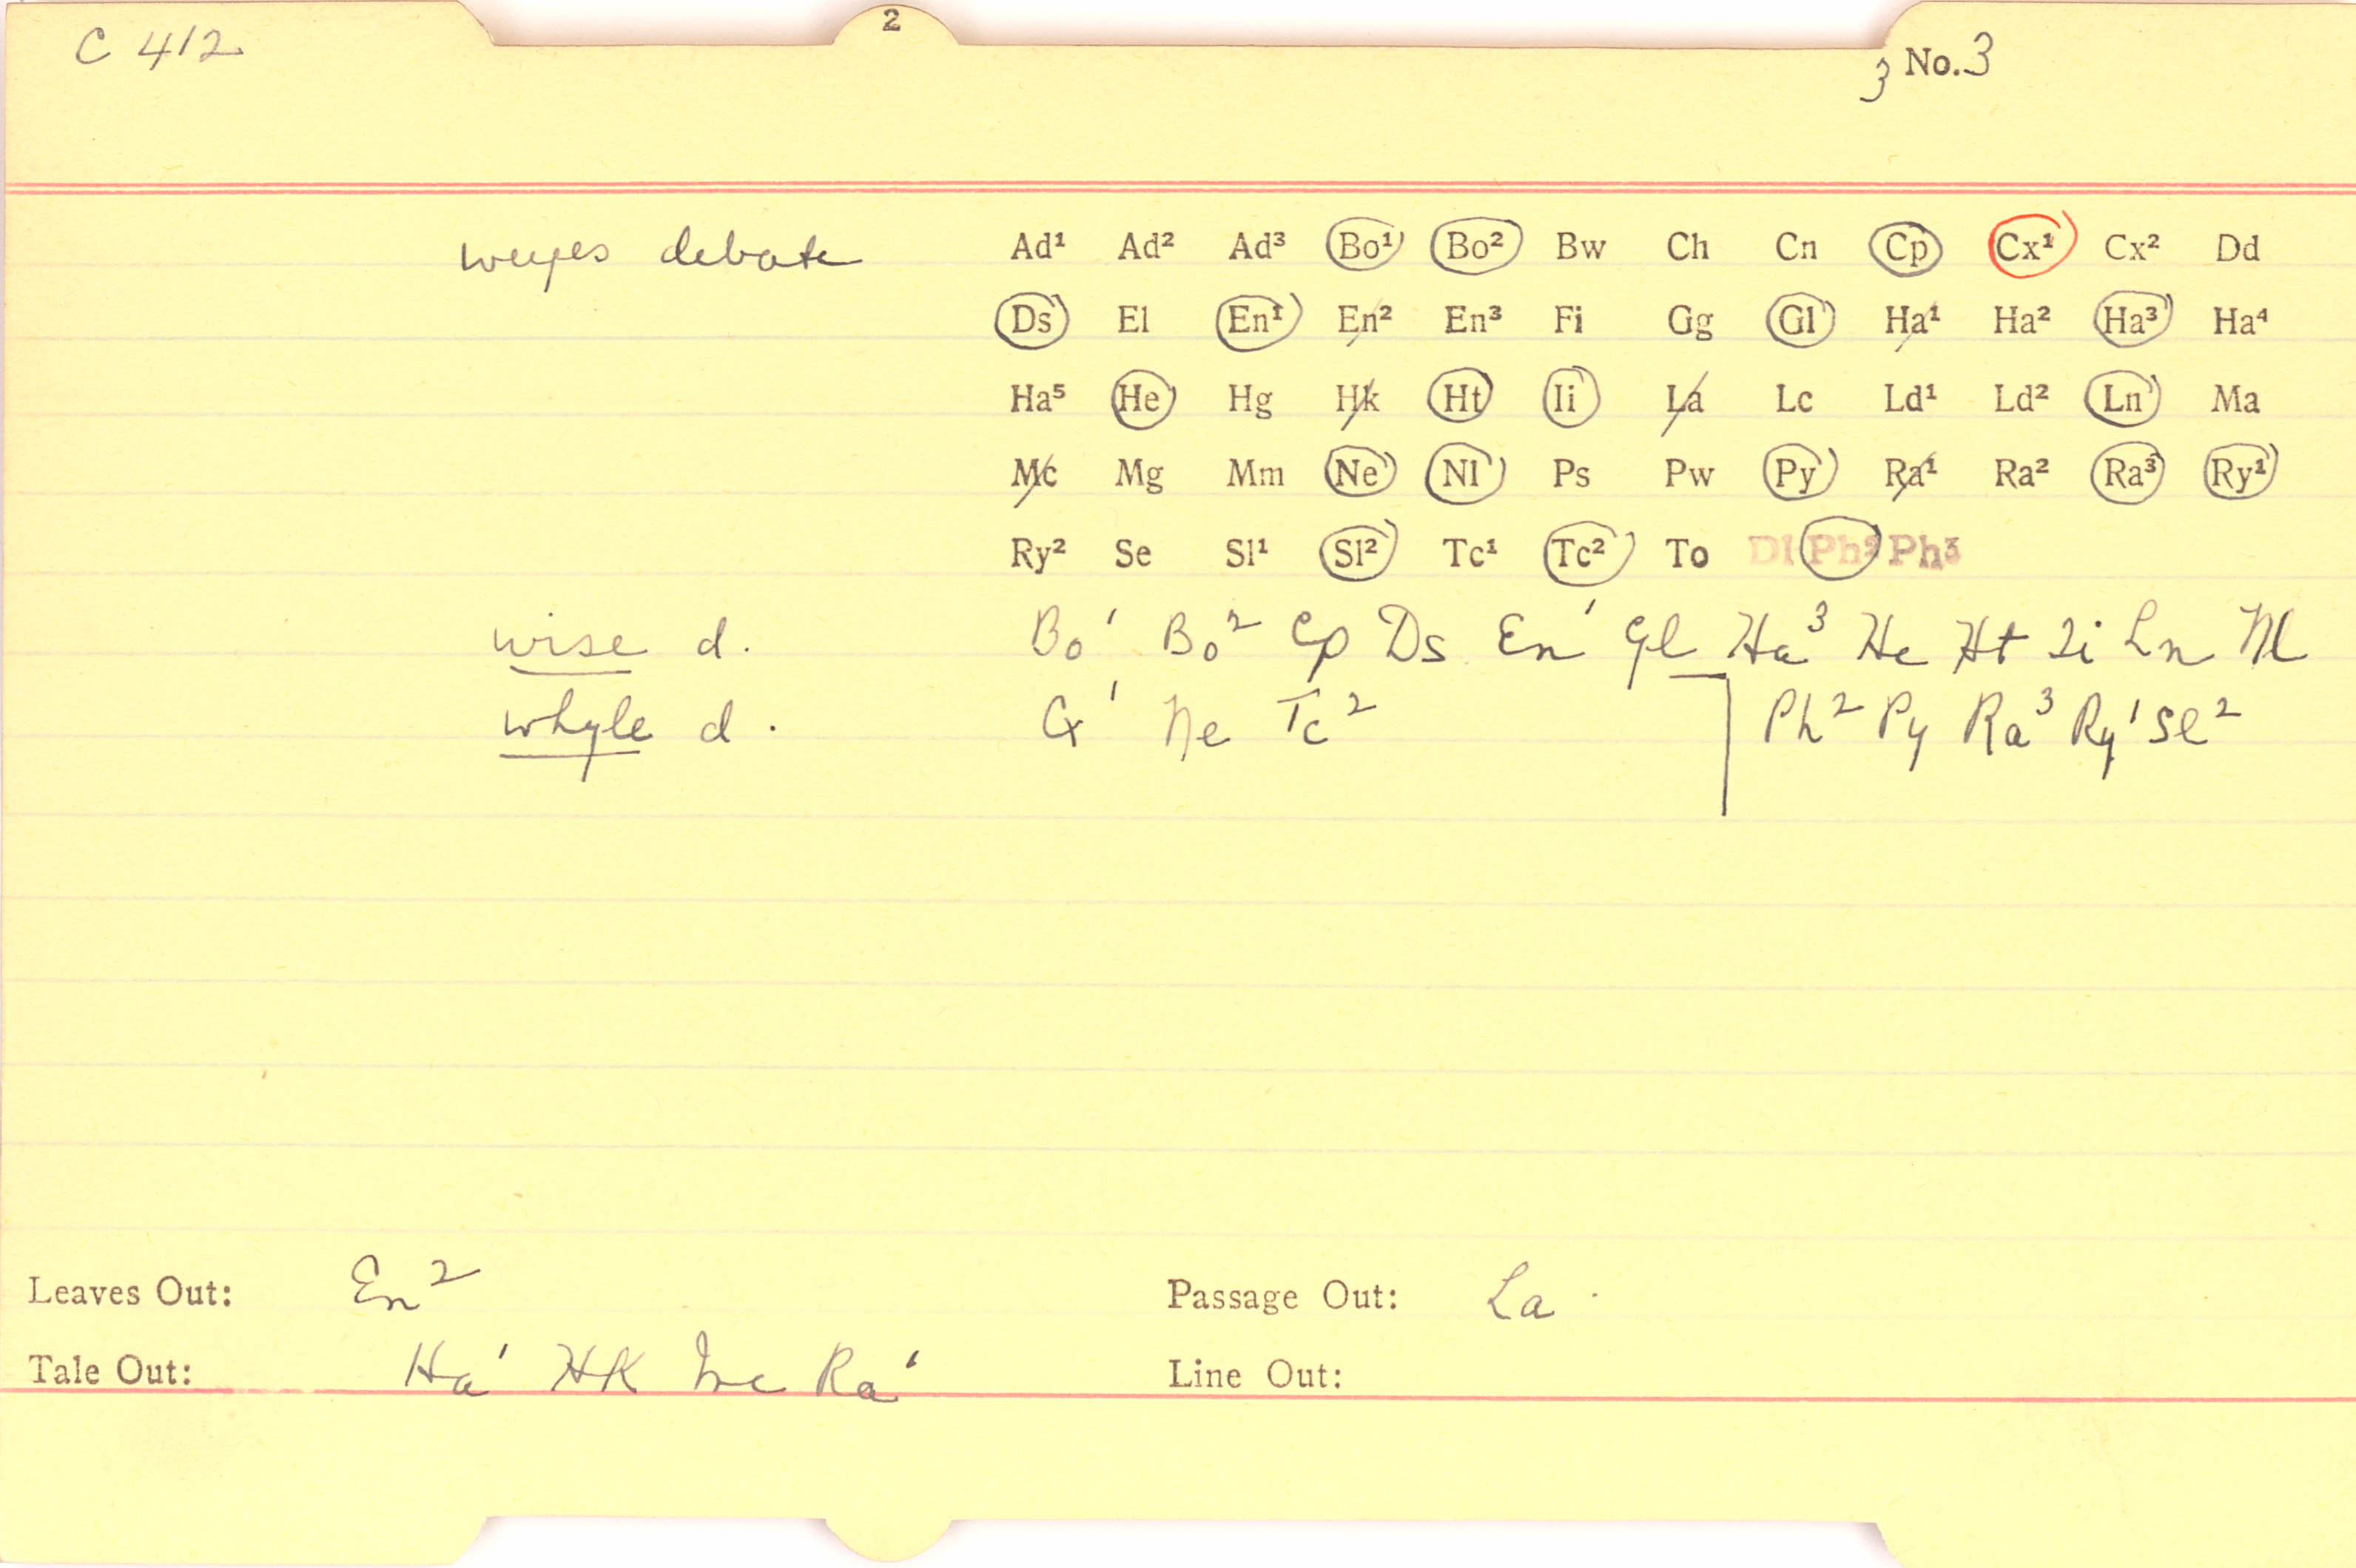 2
C 412
3 No. 3
weyes debate Ad¹ Ad² Ad³ Bo¹ Bo² Bw Ch Cn Cp Cx¹ Cx² Dd
Ds El En¹ En² En³ Fi Gg Gl Ha¹ Ha² Ha³ Ha⁴
Ha⁵ He Hg Hk Ht Ii La Lc Ld¹ Ld² Ln Ma
Mc Mg Mm Ne Nl Ps Pw Py Ra¹ Ra² Ra³ Ry¹
Ry² Se Sl¹ Sl² Tc¹ Tc² To Dl Ph² Ph³
wise d. Bo¹ Bo² Cp Ds En¹ Gl Ha³ He Ht Ii Ln Nl
whyle d. Cx¹ Ne Tc² Ph² Py Ra³ Ry¹ Sl²
Leaves Out: En² Passage Out: La
Tale Out: Ha¹ HK Mc Ra¹ Line Out: